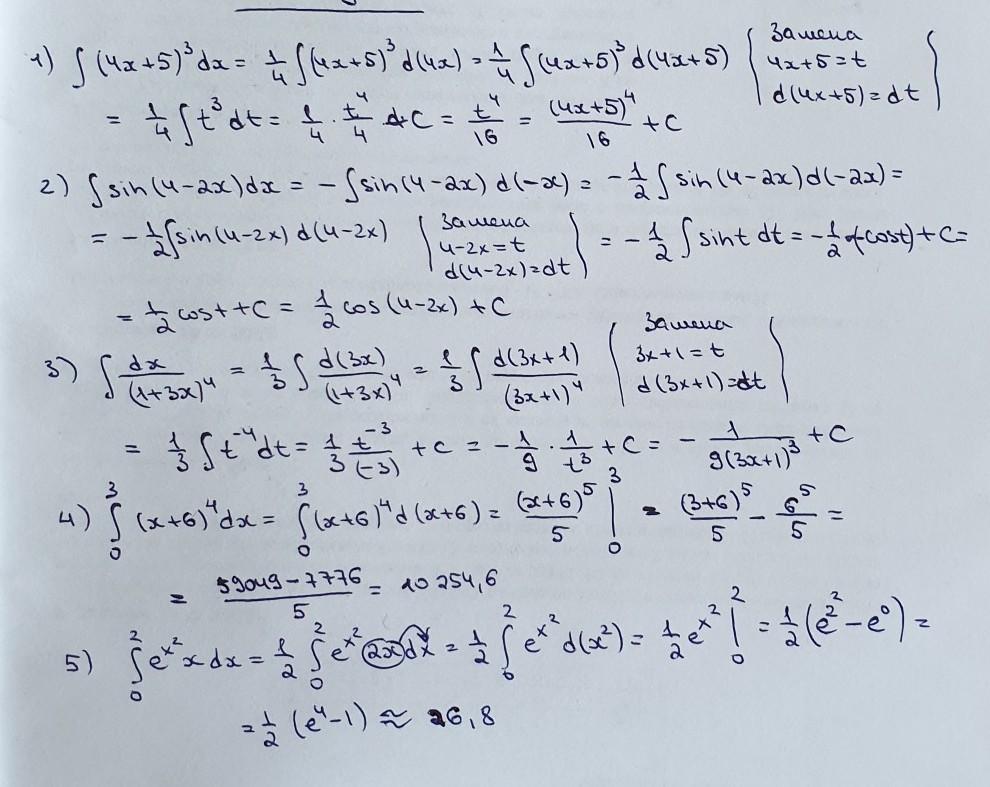 1) ∫(4x+5)³dx = 1/4 ∫(4x+5)³d(4x) = 1/4 ∫(4x+5)³d(4x+5) ( Замена 4x+5=t d(4x+5)=dt )
= 1/4 ∫t³dt = 1/4 · t⁴/4 + C = t⁴/16 = (4x+5)⁴/16 + C
2) ∫sin(4-2x)dx = -∫sin(4-2x)d(-x) = -1/2 ∫sin(4-2x)d(-2x) =
= -1/2 ∫sin(4-2x)d(4-2x) ( Замена 4-2x=t d(4-2x)=dt ) = -1/2 ∫sint dt = -1/2 (-cost)+C =
= 1/2 cost + C = 1/2 cos(4-2x) + C
3) ∫dx/(1+3x)⁴ = 1/3 ∫d(3x)/(1+3x)⁴ = 1/3 ∫d(3x+1)/(3x+1)⁴ ( Замена 3x+1=t d(3x+1)=dt )
= 1/3 ∫t⁻⁴dt = 1/3 t⁻³/(-3) + C = -1/9 · 1/t³ + C = -1/(9(3x+1)³) + C
4) ∫₀³(x+6)⁴dx = ∫₀³(x+6)⁴d(x+6) = (x+6)⁵/5 |₀³ = (3+6)⁵/5 - 6⁵/5 =
= (59049-7776)/5 = 10254,6
5) ∫₀²e^(x²)x dx = 1/2 ∫₀²e^(x²) 2x dx = 1/2 ∫₀²e^(x²)d(x²) = 1/2 e^(x²) |₀² = 1/2 (e^(2²)-e⁰) =
= 1/2 (e⁴-1) ≈ 26,8